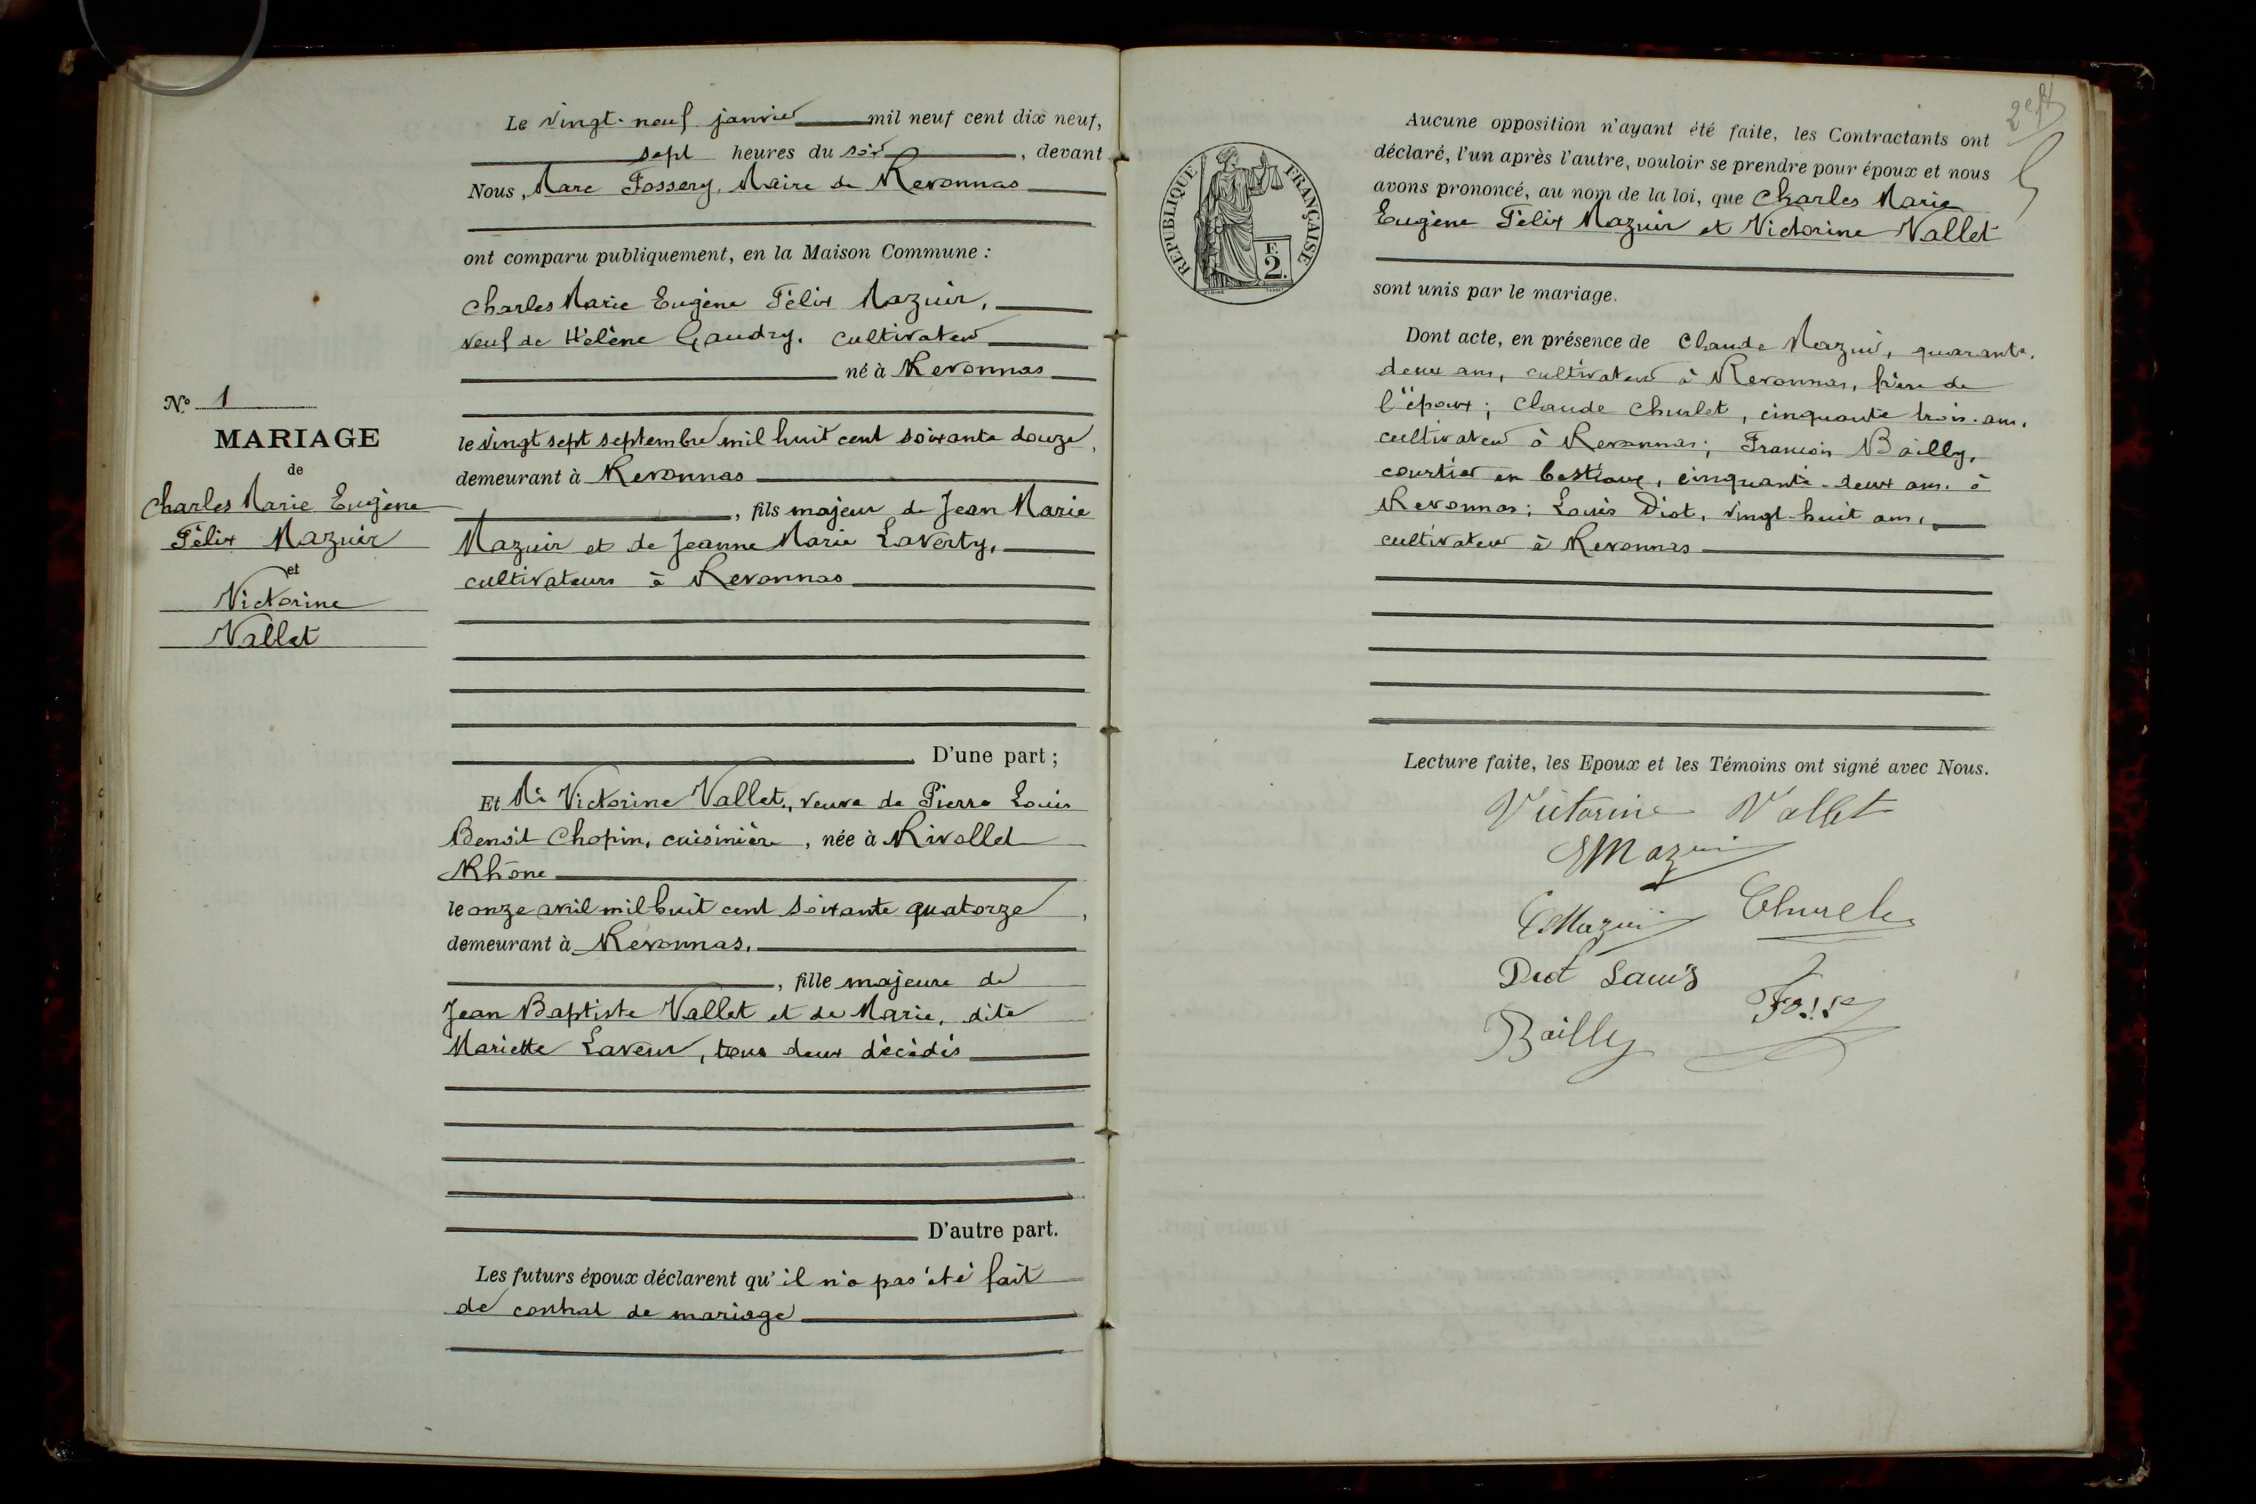 Nº 1
MARIAGE
de
Charles Marie Eugène
Félix Mazuir
et
Victorine
Vallet
Le vingt-neuf janvier mil neuf cent dix neuf,
sept heures du soir, devant
Nous, Marc Fossery, Maire de Revonnas
ont comparu publiquement, en la Maison Commune :
Charles Marie Eugène Félix Mazuir,
veuf de Hélène Gaudry. cultivateur
né à Revonnas
le vingt sept septembre mil huit cent soixante douze,
demeurant à Revonnas
, fils majeur de Jean Marie
Mazuir et de Jeanne Marie Laverty,
cultivateurs à Revonnas
D'une part ;
Et Victorine Vallet, veuve de Pierre Louis
Benoit Chopin, cuisinière, née à Rivollet
Rhône
le onze avril mil huit cent soixante quatorze,
demeurant à Revonnas,
, fille majeure de
Jean Baptiste Vallet et de Marie, dite
Mariette Laveur, tous deux décédés
D'autre part.
Les futurs époux déclarent qu'il n'a pas été fait
de contrat de mariage
RÉPUBLIQUE FRANÇAISE
F.
2.
Aucune opposition n'ayant été faite, les Contractants ont
déclaré, l'un après l'autre, vouloir se prendre pour époux et nous
avons prononcé, au nom de la loi, que Charles Marie
Eugène Félix Mazuir et Victorine Vallet
sont unis par le mariage.
Dont acte, en présence de Claude Mazuir, quarante.
deux ans, cultivateur à Revonnas, frère de
l'époux ; Claude Churlet, cinquante trois ans,
cultivateur à Revonnas ; François Bailly,
courtier en bestiaux, cinquante-deux ans. à
Revonnas ; Louis Diot, vingt-huit ans,
cultivateur à Revonnas
Lecture faite, les Epoux et les Témoins ont signé avec Nous.
Victorine Vallet
Mazuir
Mazuir
Diot Louis
Bailly